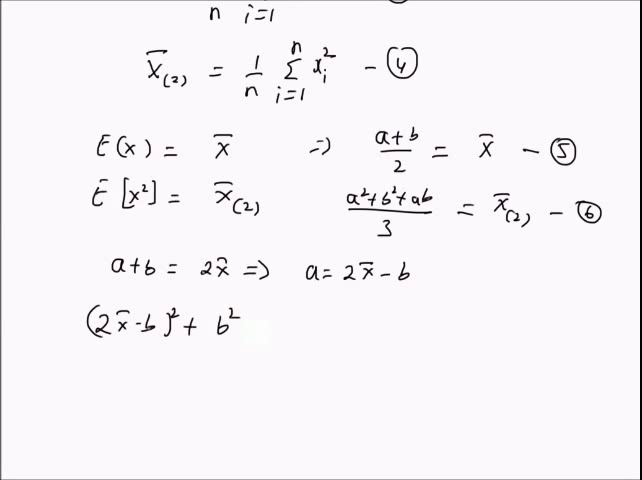 n i=1
x̄₍₂₎ = 1/n Σ_{i=1}^{n} xᵢ² - ④
E(x) = x̄ ⇒ (a+b)/2 = x̄ - ⑤
E[x²] = x̄₍₂₎ (a²+b²+ab)/3 = x̄₍₂₎ - ⑥
a+b = 2x̄ ⇒ a = 2x̄ - b
(2x̄-b)² + b²